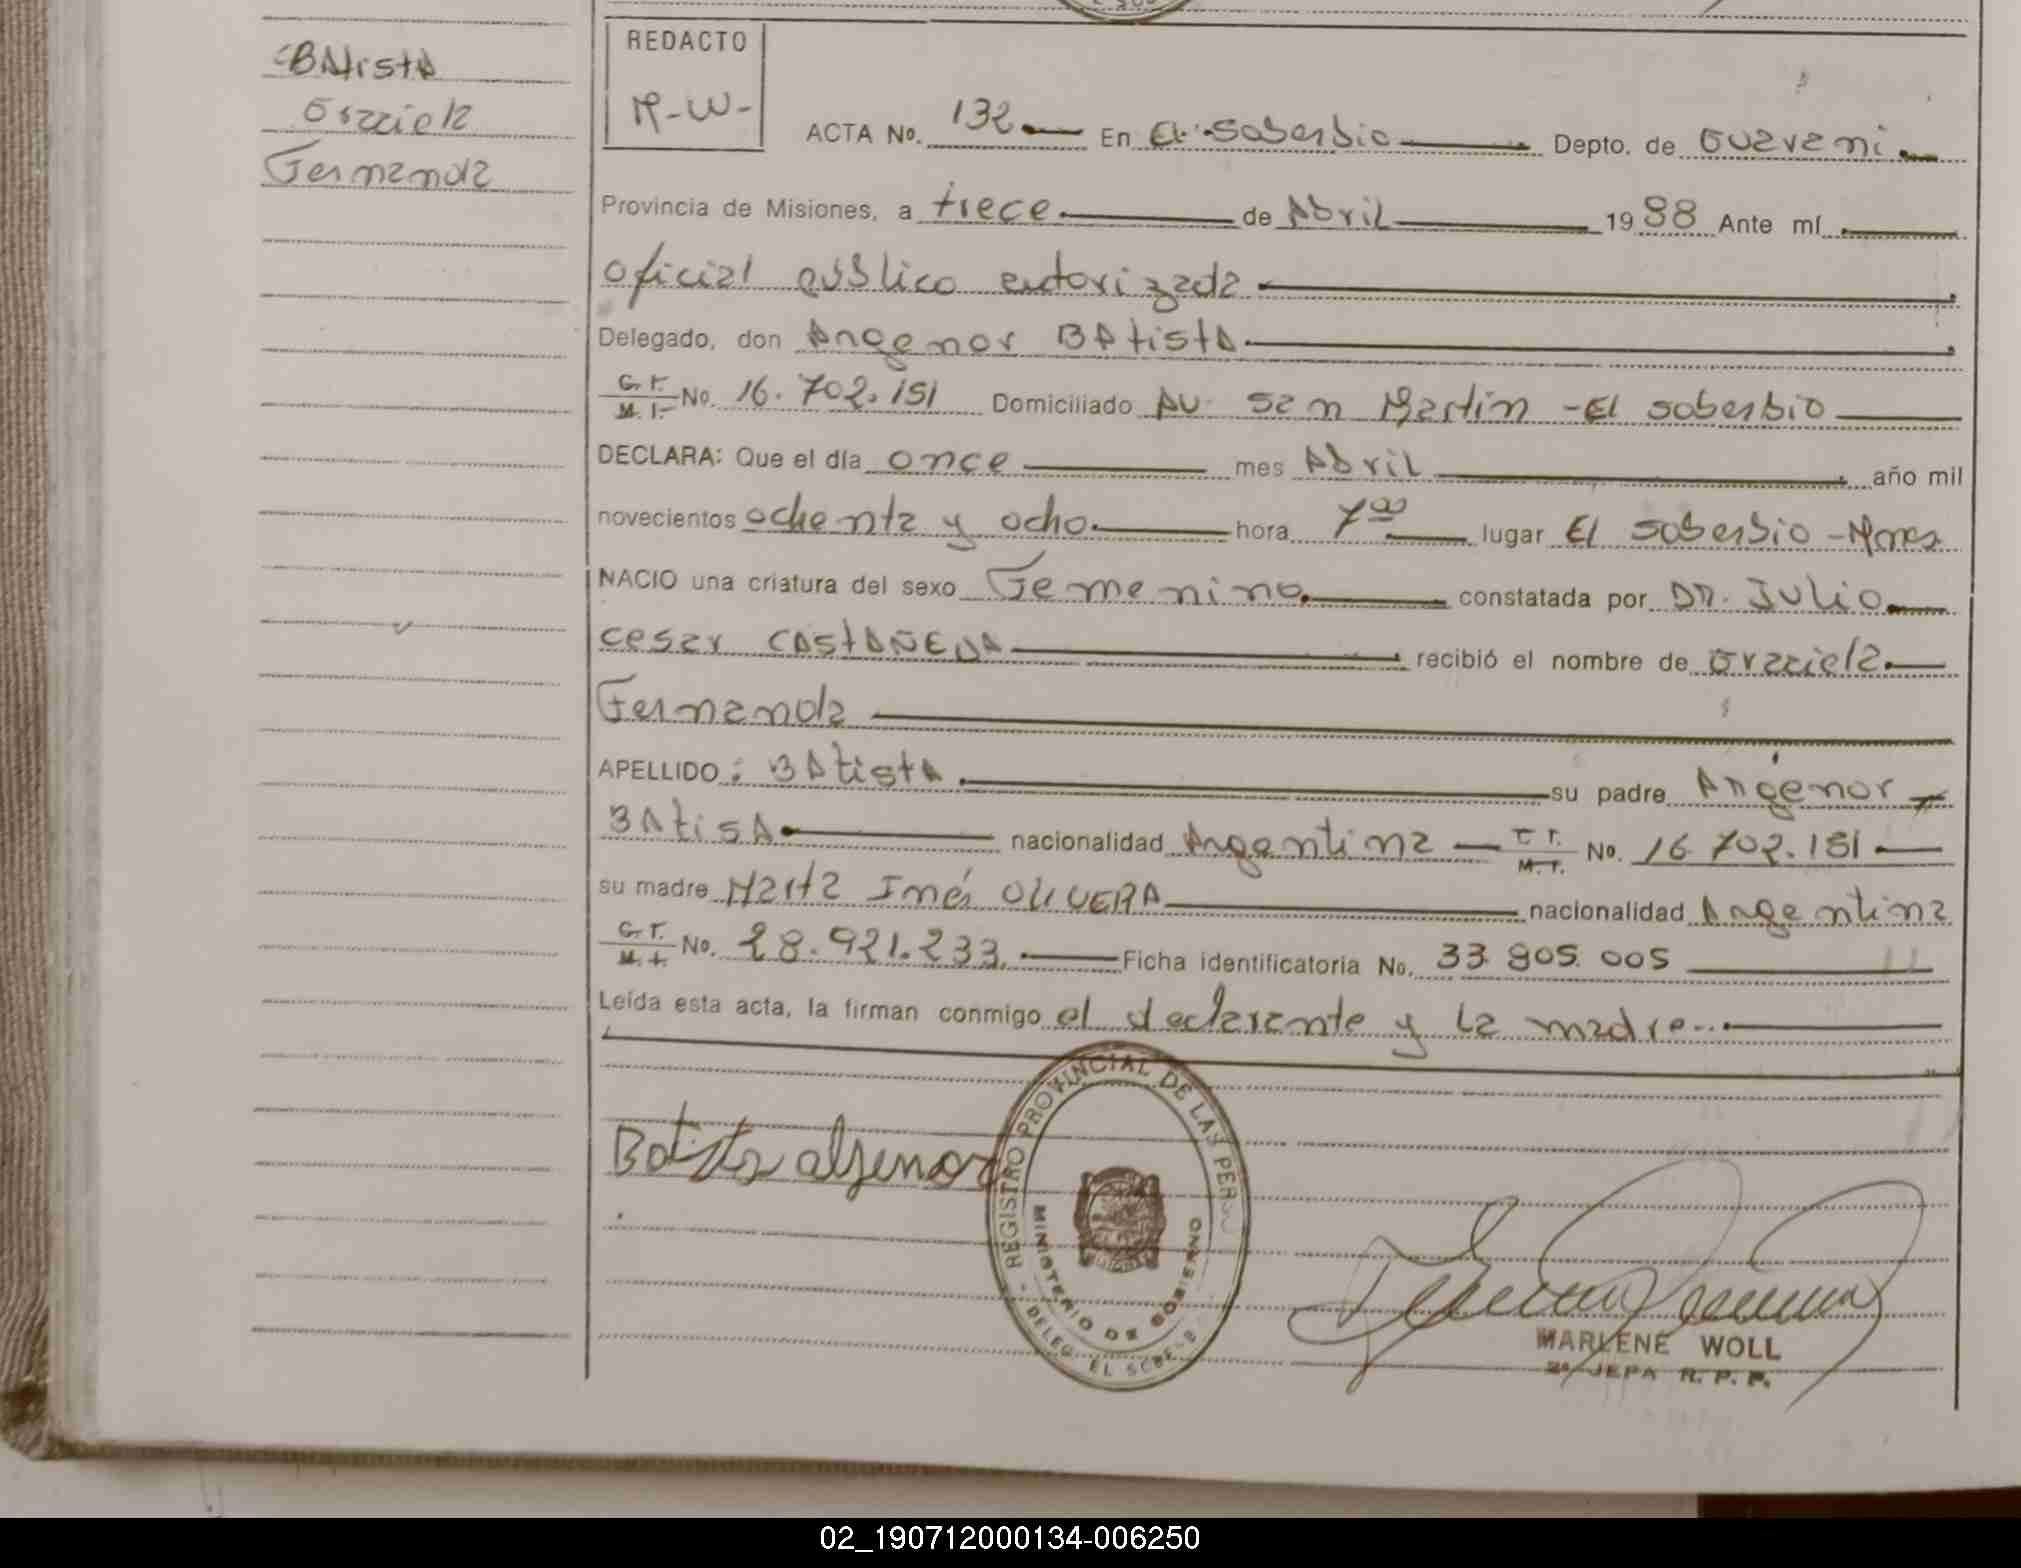 BAtistA
Graciela
Fernanda
REDACTO
M-W-
ACTA No. 132 En El Soberbio Depto. de Guarani
Provincia de Misiones, a trece de Abril 1988 Ante mí
oficial público autorizada
Delegado, don Angenor BAtistA
C.I. M.I. No. 16.702.151 Domiciliado Av. San Martin - El Soberbio
DECLARA: Que el día once mes Abril año mil
novecientos ochenta y ocho hora 7 00 lugar El Soberbio - Mnes
NACIO una criatura del sexo Femenino constatada por DR. Julio
Cesar CASTAÑEDA recibió el nombre de Graciela
Fernanda
APELLIDO: BAtistA su padre Angenor
BAtisA nacionalidad Argentina C.I. M.I. No. 16 702.151
su madre Marta Inés OLIVERA nacionalidad Argentina
C.I. M.I. No. 28.921.233 Ficha identificatoria No. 33.805.005
Leída esta acta, la firman conmigo el declarante y la madre
Batista
REGISTRO PROVINCIAL DE LAS PERSO
MINISTERIO DE GOBIERNO
DELEG. EL SOBERB
MARLENE WOLL
2a JEFA R. P. P.
02_190712000134-006250